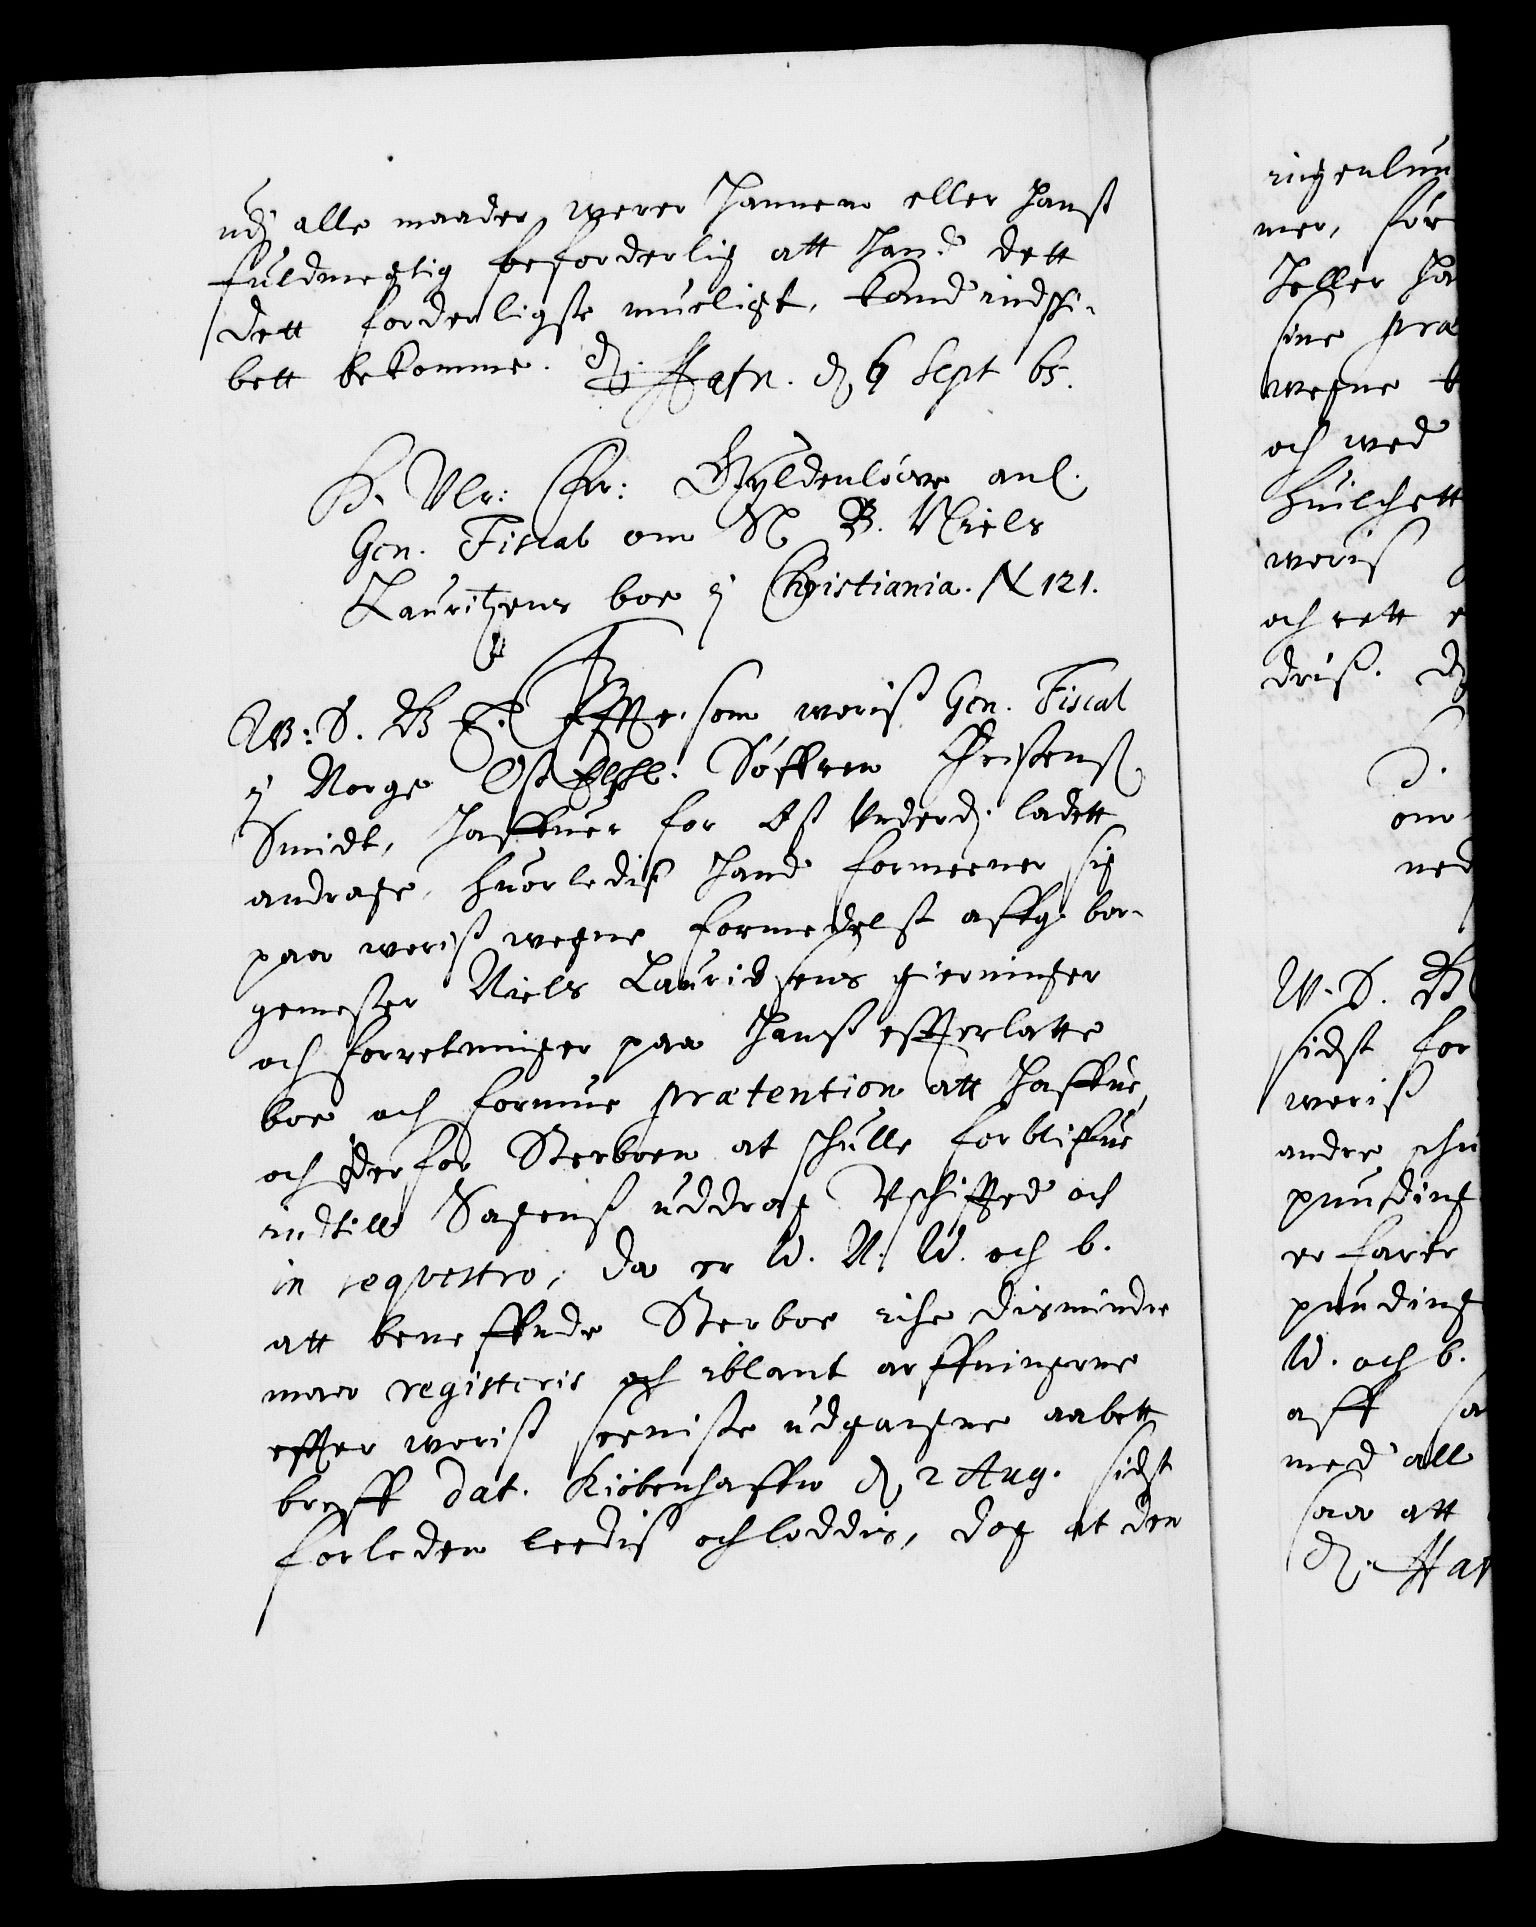 udj alle maader werer hannem eller hans
fuldmegtig beforderlig att hand dett
dett forderligste mueligt, kand indschi-
bett bekomme. Hafn. d 6 Sept 65.
H. Ulr: Fr: Gyldenløwe anl.
Gen. Fiscal om S. B. Niels
Lauritzens boe j Christiania. N 121.
W: S. B T. Effter som woris Gen. Fiscal
j Norge Oss Elshl. Søffren Christens
Smidt, haffuer for Oss Underd. ladett
andrage, huorledis hand formeener sig
paa woris wegne formedelst affg. bor-
gemester Niels Lauridsens gierninger
och forretninger paa hans effterlatte
boe och formue prætention att haffue,
och derfor Sterboen at schulle forbliffue
indtill Sagens uddrag Uschifted och
in seqvestro, da er W. N. W. och b.
att beneffnde Sterboe iche dismindre
maa registeris och iblant arffuingerne
effter woris seeniste udgangne aabett
breff dat. Kiøbenhaffn d 2 Aug. sidst
forleden leedis och loddis, dog at den
ringenlun
mer, for
heller ha
sine præ
wegne
och wed
huilchett
woris
och rett
driss.
om
ned
W. S. B
sidst for
woris
andre schu
pending
erfarer
pending
W. och b.
aff sa
med all
saa att
d. Haf